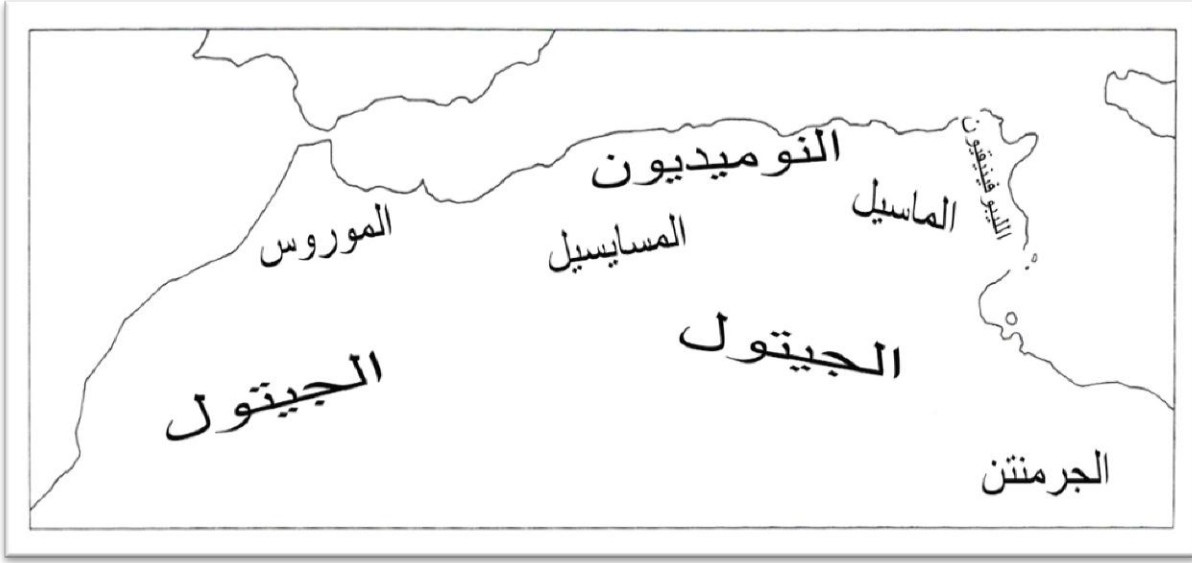 النوميديون
الليبو فينيقيون
الماسيل
الموروس
المسايسيل
الجيتول
الجيتول
الجرمنتن